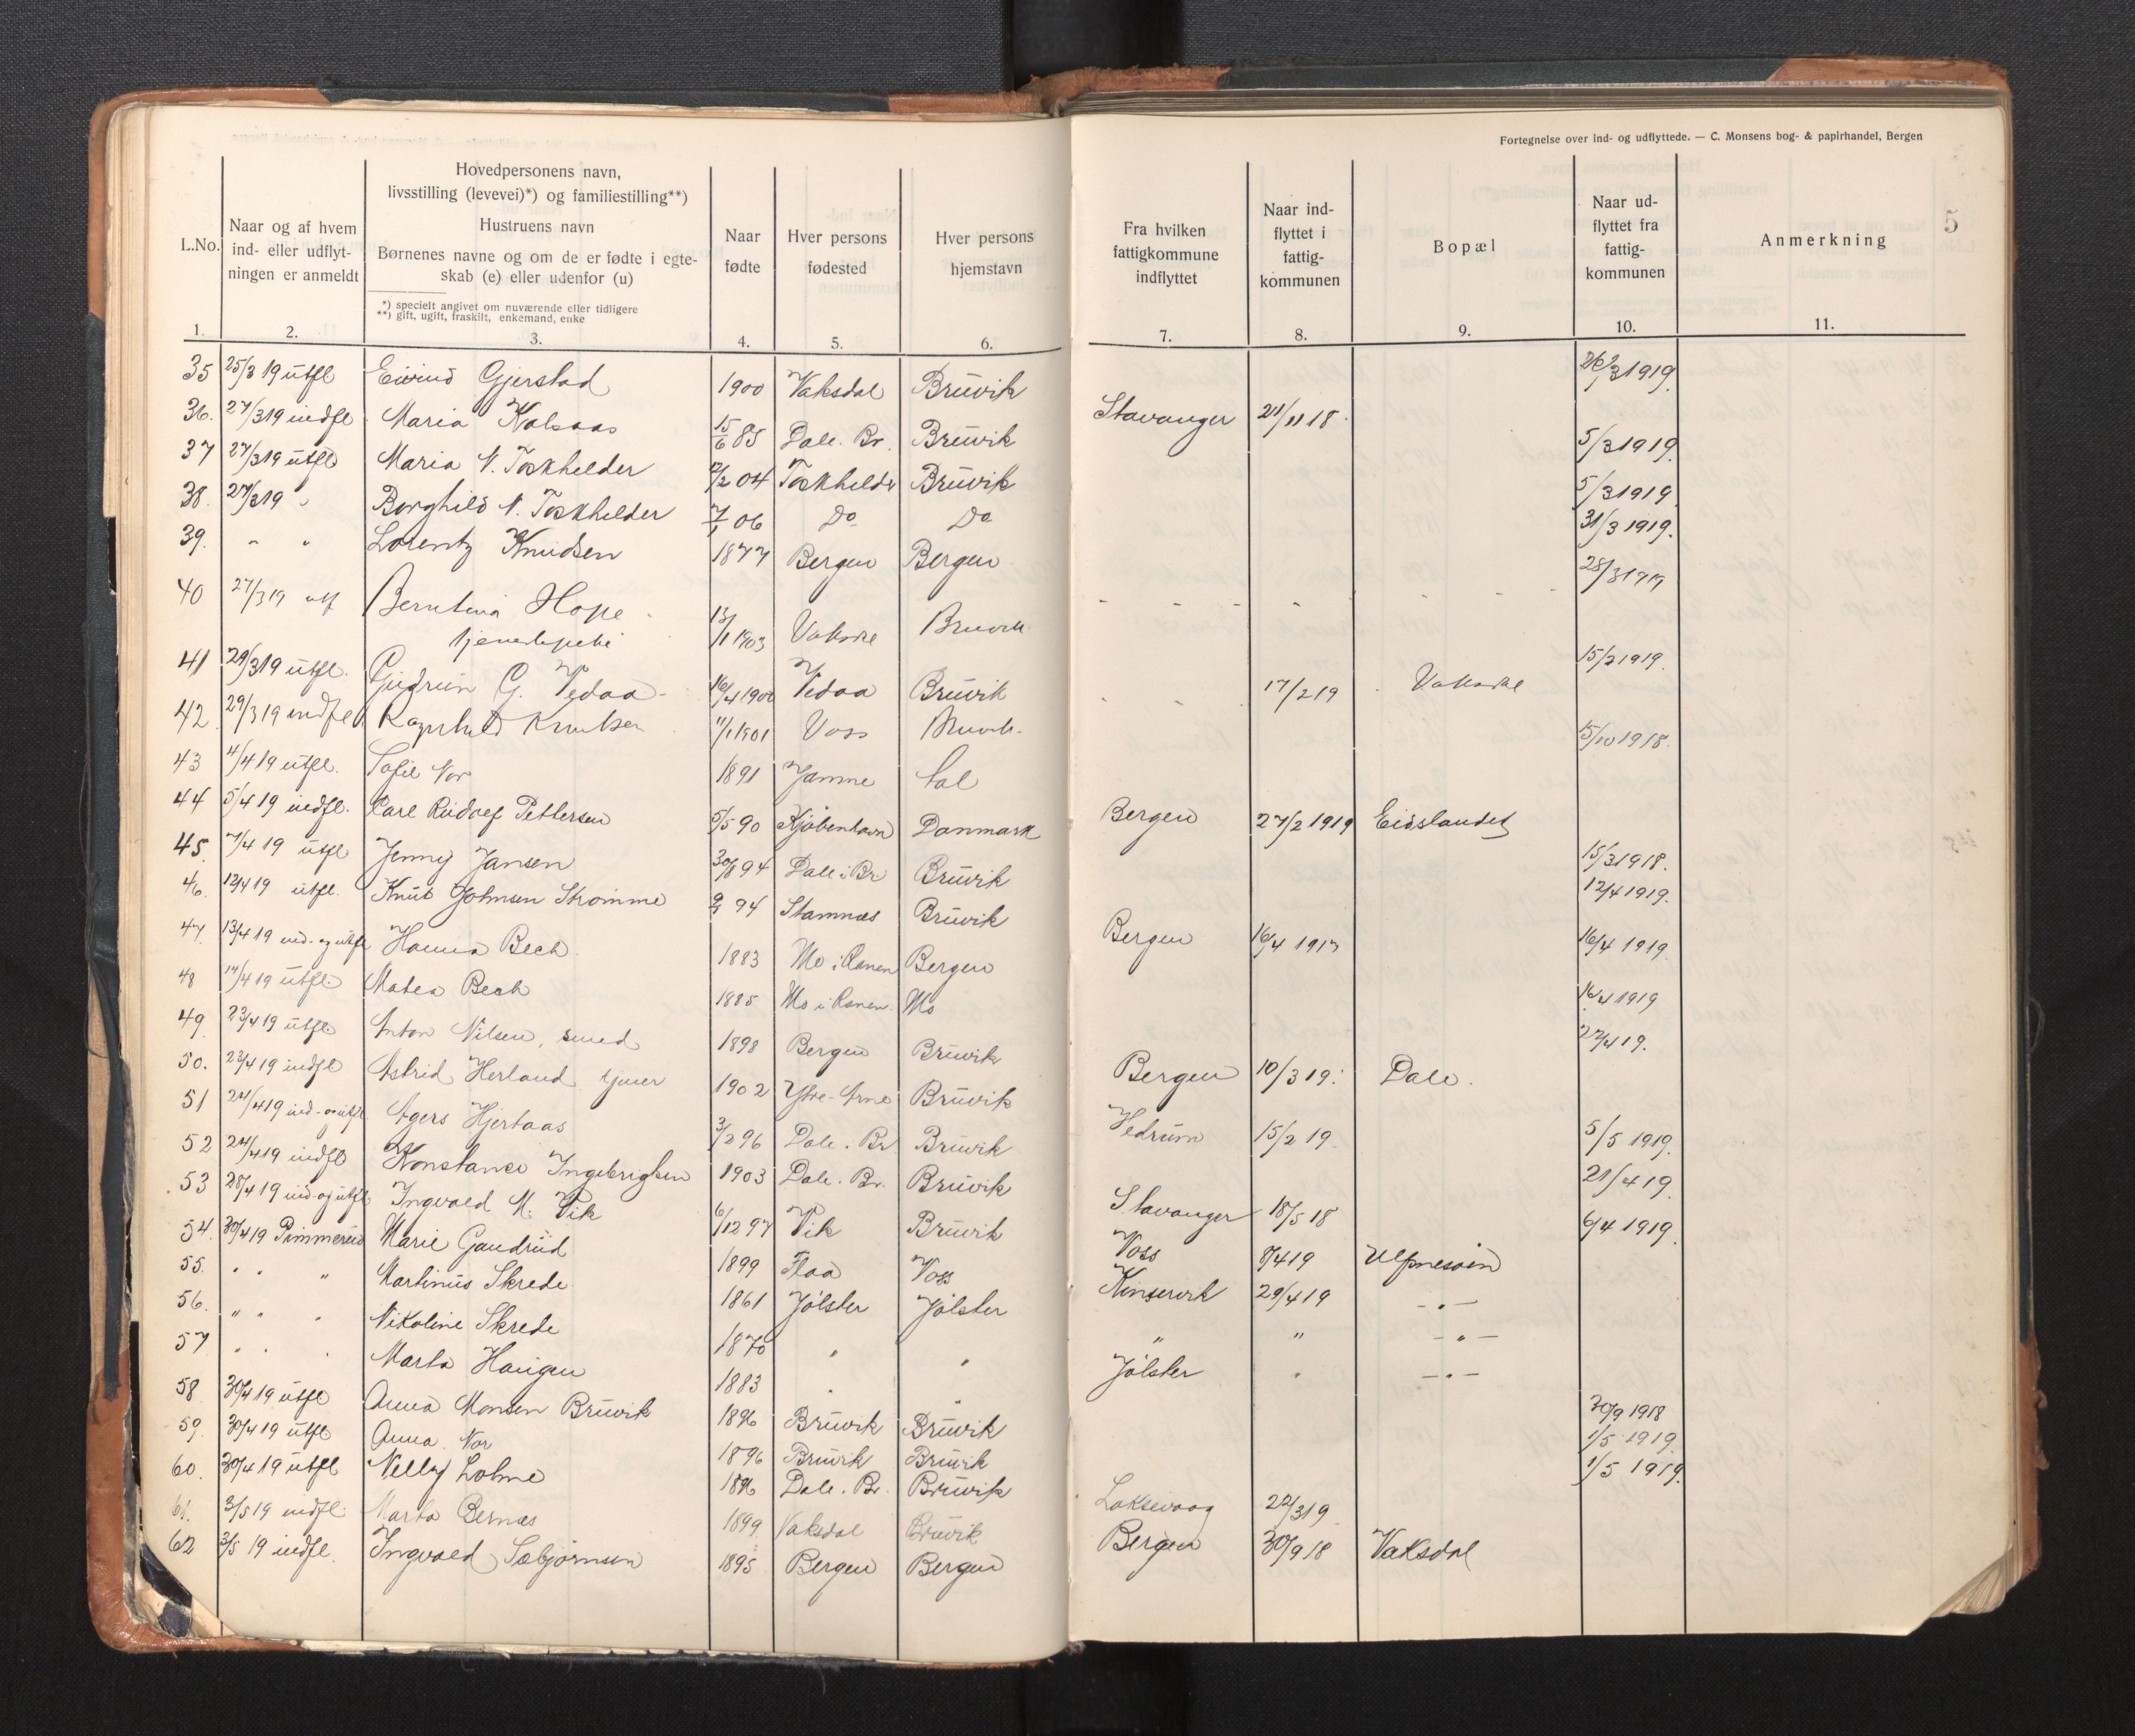 Fortegnelse over ind- og udflyttede. — C. Monsens bog- & papirhandel, Bergen
5
L.No.
1.
Naar og af hvem
ind- eller udflyt-
ningen er anmeldt
2.
Hovedpersonens navn,
livsstilling (levevei)*) og familiestilling**)
Hustruens navn
Børnenes navne og om de er fødte i egte-
skab (e) eller udenfor (u)
*) specielt angivet om nuværende eller tidligere
**) gift, ugift, fraskilt, enkemand, enke
3.
Naar
fødte
4.
Hver persons
fødested
5.
Hver persons
hjemstavn
6.
Fra hvilken
fattigkommune
indflyttet
7.
Naar ind-
flyttet i
fattig-
kommunen
8.
Bopæl
9.
Naar ud-
flyttet fra
fattig-
kommunen
10.
Anmerkning
11.
35 25/3 19 utfl Eivind Gjerstad 1900 Vaksdal Bruvik 26/3 1919.
36. 27/3 19 indfl Maria Kalsaas 15/6 85 Dale. Br. Bruvik Stavanger 21/11 18.
37 27/3 19 utfl Maria N. Toskhelder 2/2 04 Toskhelder Bruvik 5/3 1919.
38. 27/3 19 " Borghild N. Toskhelder 7/1 06 Do Do 5/3 1919
39. " " Lorentz Knudsen 1877 Bergen Bergen 31/3 1919.
40 27/3 19 utf Berntina Hope 13/1 1903 Vaksdal Bruvik 28/3 1919
41 29/3 19 utfl. Gudrun G. Vedaa 16/4 1900 Vedaa Bruvik 15/2 1919.
42. 29/3 19 indfl Ragnhild Knutsen 11/1 1901 Voss Bruvik 17/2 19 Vaksdal
43 4/4 19 utfl. Sofie Nor 1891 15/10 1918.
44 5/4 19 indfl. Carl Rudolf Pettersen 5/5 90 Kjøbenhavn Danmark Bergen 27/2 1919 Eidslandet
45. 7/4 19 utfl Jenny Jansen 30/8 94 Dale i Br Bruvik 15/3 1918.
46. 12/4 19 utfl. Knut Johnsen Strømme 94 Stamnæs Bruvik 12/4 1919.
47. 13/4 19 ind- og utfl Hanna Bech. 1883 Mo i Ranen Bergen Bergen 16/4 1917 16/4 1919.
48 14/4 19 utfl. Matea Bech 1885 Mo i Ranen. Mo 16/4 1919
49. 23/4 19 utfl. Anton Nilsen, smed 1898 Bergen Bruvik 22/4 19.
50. 23/4 19 indfl Astrid Herland tjener 1902 Ytre-Arne Bruvik Bergen 10/3 19. Dale.
51 24/4 19 ind- og utfl Agers Hjertaas 3/2 96 Dale. Br Bruvik Hedrum 15/2 19. 5/5 1919.
52 24/4 19 indfl Konstance Ingebrigtsen 1903 Dale. Br. Bruvik 21/4 19.
53 28/4 19 ind- og utfl Ingvald M. Vik 6/12 97 Vik Bruvik Stavanger 18/5 18 6/4 1919.
54. 30/4 19 Marie Gaudrud 1899 Flaa Voss Voss 8/4 19
55. " " " Martinus Skrede 1861 Jølster Jølster Kinservik 29/4 19 - " -
56. " " " Nikoline Skrede 1870 " " " " - " -
57 " " " Marta Haugen 1883 " " Jølster " - " -
58 30/4 19 utfl Anna Monsen Bruvik 1896 Bruvik Bruvik 30/9 1918
59. 30/4 19 utfl Anna Nor 1896 Bruvik Bruvik 1/5 1919.
60. 30/4 19 utfl Nelly Lohne 1896 Dale. Br. Bruvik 1/5 1919.
61. 3/5 19 indfl. Marta Bernæs 1899. Vaksdal Bruvik Laksevaag 22/3 19
62 3/5 19 indfl. Ingvald Sæbjørnsen 1895 Bergen Bergen Bergen 30/9 18 Vaksdal